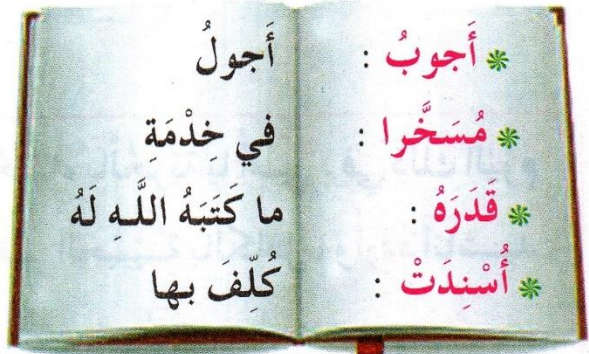 * أَجوبُ : أَجولُ
* مُسَخَّرا : في خِدْمَةِ
* قَدَرَهُ : ما كَتَبَهُ اللَّـهِ لَهُ
* أُسْنِدَتْ : كُلِّفَ بها